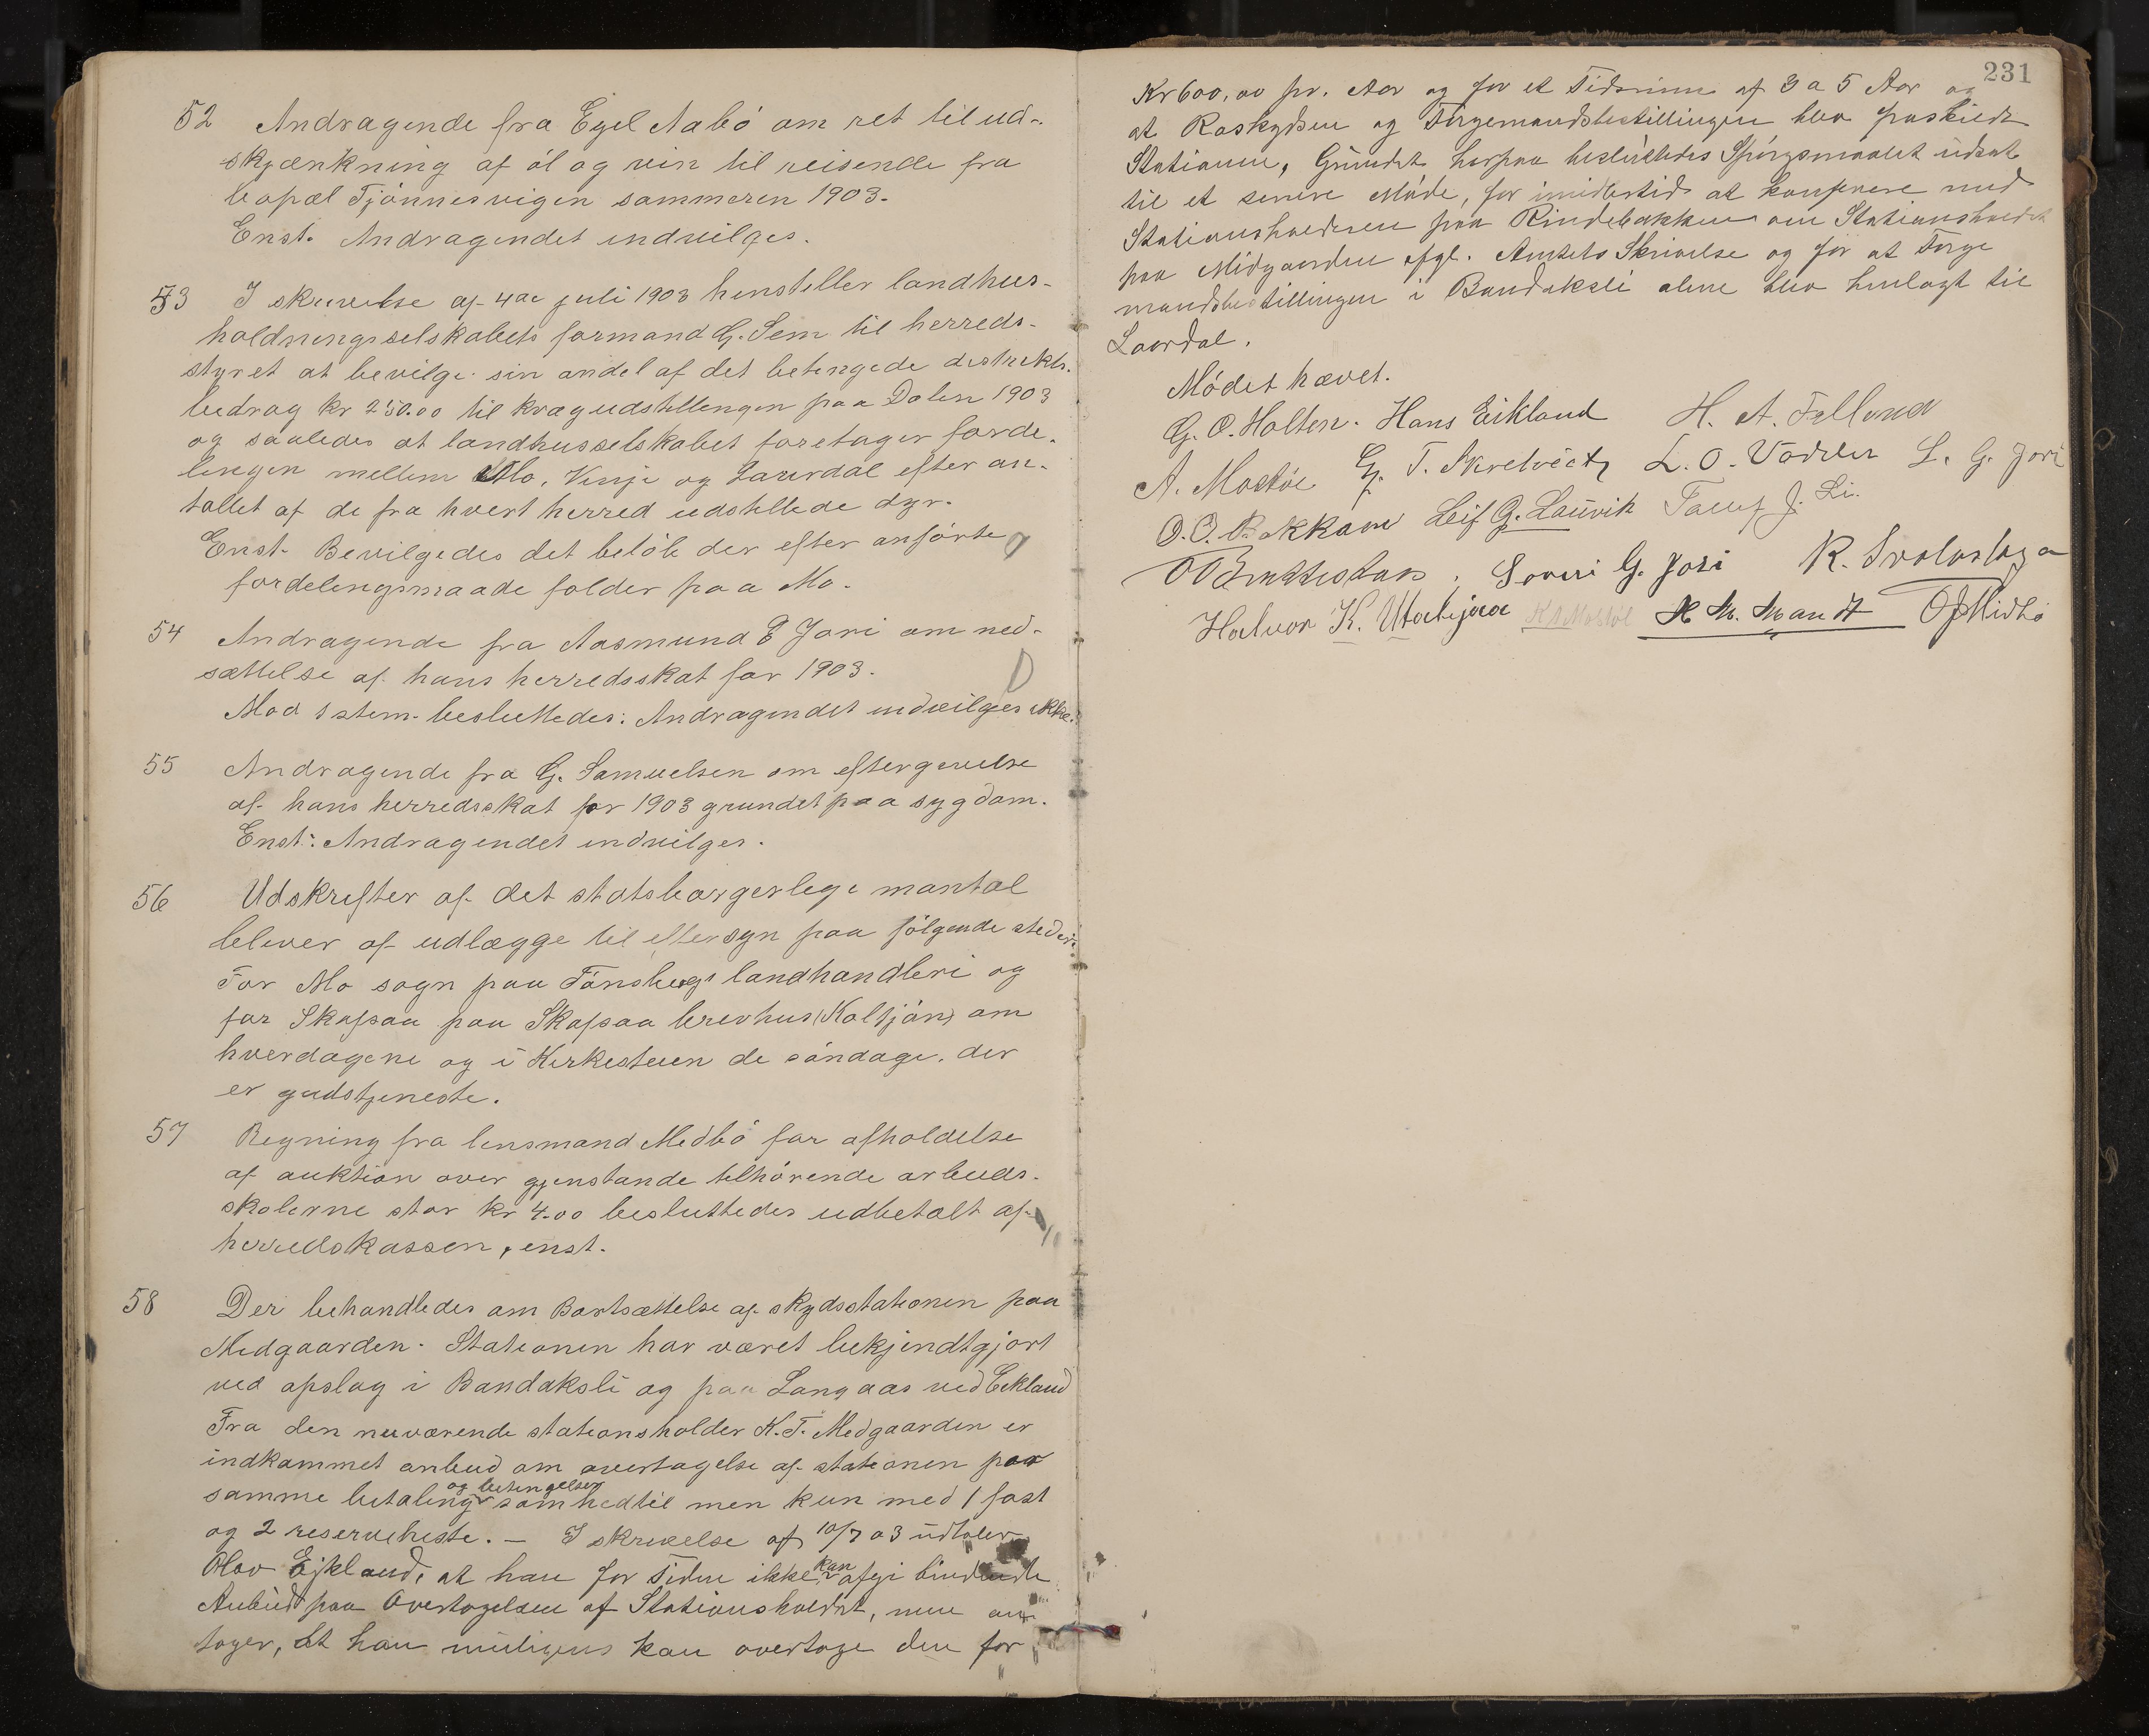 52 Andragende fra Egel Aabø om ret til ud-
skjænkning af øl og vin til reisende fra
bopæl Tjønnesvigen sommeren 1903.
Enst. Andragendet indvilges.
53 I skrivelse af 4de juli 1903 henstiller landhus-
holdningsselskabets formand G. Sem til herreds-
styret at bevilge sin andel af det betingede distrikts-
bidrag kr 250.00 til kvægudstillingen paa Dalen 1903
og saaledes at landhusselskabet foretager forde-
lingen mellem Mo, Vinje og Laurdal efter an-
tallet af de fra hvert herred udstillede dyr.
Enst. Bevilgedes det beløb der efter anførte
fordelingsmaade falder paa Mo.
54 Andragende fra Aasmund E Jori om ned-
sættelse af hans herredsskat for 1903.
Mod 1 stem. besluttedes: Andragendet indvilges ikke.
55 Andragende fra G. Samuelsen om eftergivelse
af hans herredsskat for 1903 grundet paa sygdom.
Enst: Andragendet indvilges.
56 Udskrifter af det statsborgerlige mantal
bliver at udlægge til eftersyn paa følgende steder:
For Mo sogn paa Tønsbergs landhandleri og
for Skafsaa paa Skafsaa brevhus (Koltjøn) om
hverdagene og i Kirkestuen de søndage, der
er gudstjeneste.
57 Regning fra lensmand Midbø for afholdelse
af auktion over gjenstande tilhørende arbeids-
skolerne stor kr 4.00 besluttedes udbetalt af
herredskassen, enst.
58 Der behandledes om Bortsættelse af skydsstationen paa
Midgaarden. Stationen har været bekjendtgjort
ved opslag i Bandaksli og paa Langaas ved Eikland
Fra den nuværende stationsholder K. T. Midgaarden er
indkommet anbud om overtagelse af stationen paa
samme betaling og betingelser som hedtil men kun med 1 fast
og 2 reserveheste. — I skrivelse af 10/7 03 udtaler
Olav Ejkland, at han for Tiden ikke kan afgi bindende
Anbud paa Overtagelsen af Stationsholdet, men an-
tager, at han muligens kan overtage den for
231
Kr 600,00 pr. Aar og for et Tidsrum af 3 a 5 Aar og
at Roskydsen og Færgemandsbestillingen blev fraskilt
Stationen, Grundet herpaa besluttedes Spørgsmaalet udsat
til et senere Møde, for imidlertid at konferere med
Stationsholderen paa Rindebakken om Stationsholdet
paa Midgaarden ifgl. Amtets Skrivelse og for at Færge
mandsbestillingen i Bandaksli alene blev henlagt til
Laurdal.
Mødet hævet.
G. O. Holten. Hans Eikland H. A. Felland
A. Mostøl G. T. Skretveit L. O. Vadder L. G. Jori
O. O. Bakkane Leif G. Lauvik J. Li.
Sveni G. Jori K. Svalastoga
Halvor K. Utabjaa K A Mostøl H M. Mandt O J Midbø